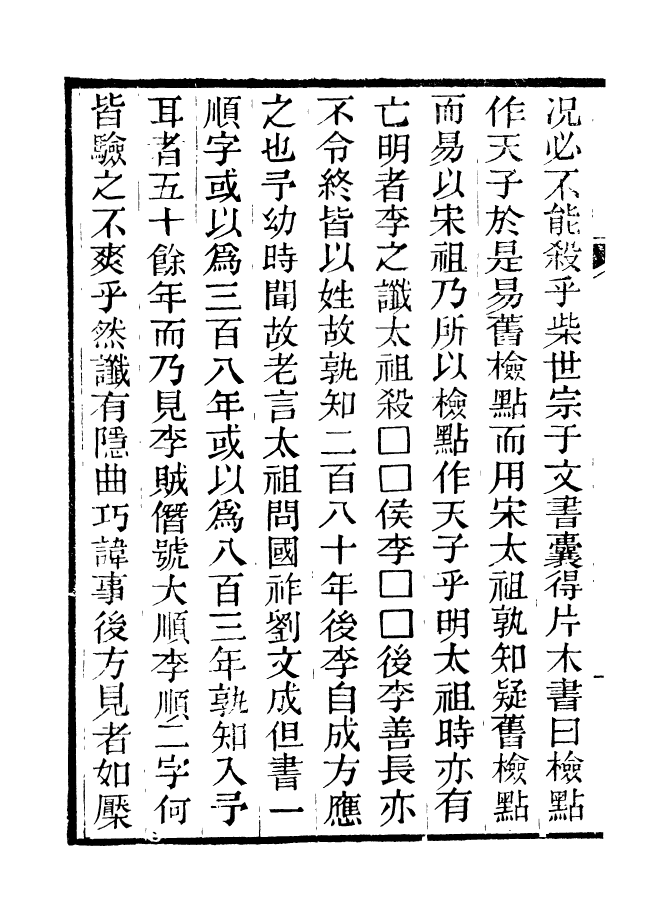 況必不能殺乎柴世宗子文書囊得片木書曰檢點
作天子於是易舊檢點而用宋太祖孰知疑舊檢點
而易以宋祖乃所以檢點作天子乎明太祖時亦有
亡明者李之讖太祖殺□□侯李□□後李善長亦
不令終皆以姓故孰知二百八十年後李自成方應
之也予幼時聞故老言太祖問國祚劉文成但書一
順字或以爲三百八年或以爲八百三年孰知入予
耳者五十餘年而乃見李賊僭號大順李順二字何
皆驗之不爽乎然讖有隱曲巧諱事後方見者如檿